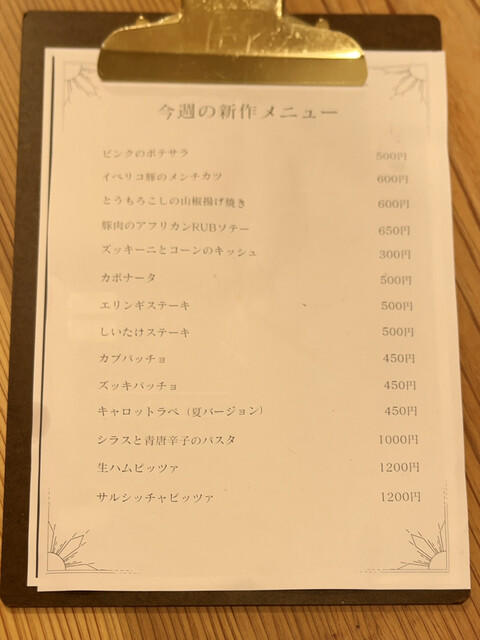 今週の新作メニュー
ピンクのポテサラ 500円
イベリコ豚のメンチカツ 600円
とうもろこしの山椒揚げ焼き 600円
豚肉のアフリカンRUBソテー 650円
ズッキーニとコーンのキッシュ 300円
カポナータ 500円
エリンギステーキ 500円
しいたけステーキ 500円
カブパッチョ 450円
ズッキパッチョ 450円
キャロットラペ（夏バージョン） 450円
シラスと青唐辛子のパスタ 1000円
生ハムピッツァ 1200円
サルシッチャピッツァ 1200円